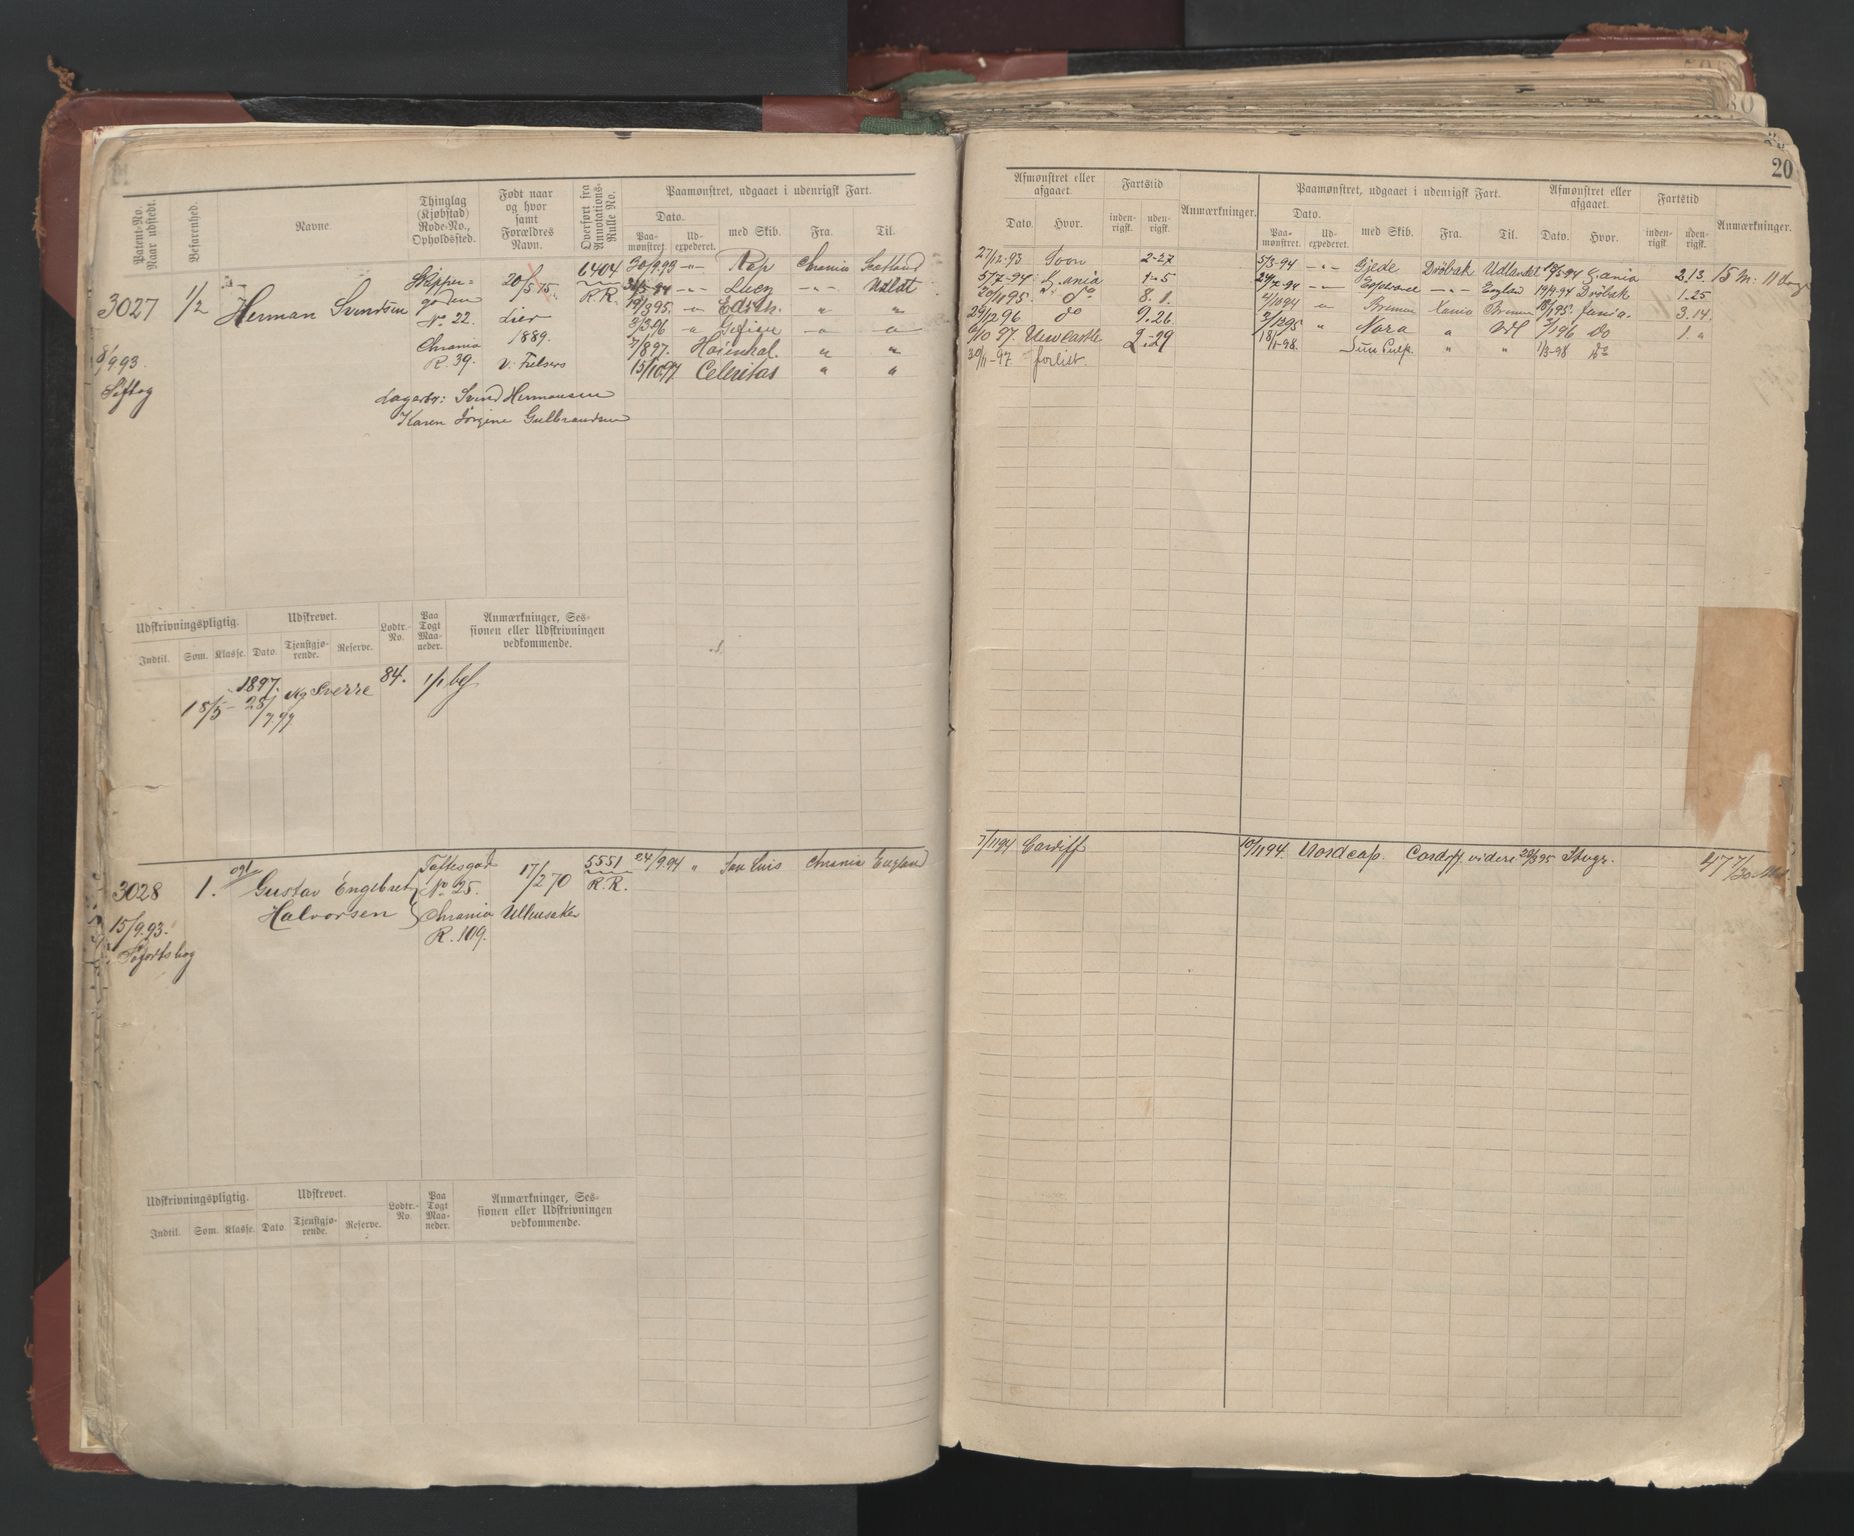 20
Patent-No. Naar udstedt.
Befarenhed.
Navne.
Thinglag (Kjøbstad) Rode-No., Opholdssted.
Født naar og hvor samt Forældres Navn.
Overført fra Annotations-Rulle No.
Paamønstret, udgaaet i udenrigsk Fart.
Dato.
Paa-mønstret.
Ud-expederet.
med Skib.
Fra.
Til.
Afmønstret eller afgaaet.
Dato.
Hvor.
Fartstid
inden-rigsk.
uden-rigsk.
Anmærkninger.
Paamønstret, udgaaet i udenrigsk Fart.
Dato.
Paa-mønstret.
Ud-expederet.
med Skib.
Fra.
Til.
Afmønstret eller afgaaet.
Dato.
Hvor.
Fartstid
inden-rigsk.
uden-rigsk.
Anmærkninger.
3027
1/2
Herman Svendsen
Skipper-
gaden
No 22.
Chrania
R. 39.
20/5 75.
Lier
1889.
6404
R. R.
Lagerbr: Svend Hermansen
Karen Jörgine Gulbrandsen
30/9.93 -"- Rap Chrania Scotland
-"- Lucy -"- Udldt
19/3 95. Edvin. " "
3/3 96
7/8 97.
15/10.97. Celeritas " "
27/12-93 Soon 2-27
5/7-94 X.ania 1-5
20/11 95. do 8. 1.
29/12 96 do 9. 26
6/10 97. Newcastle 2-29
30/11-97. forlist.
5/3-94 -"- Gjede Drøbak Udlandet 18/5-94 X.ania 2.13. 15 M. 11 dage
24/7-94 -"- -"- England 19/9-94 Drøbak 1.25
2/10 94 " Bremen Xania Bremen Xania. 3.14.
3/12 95 " Nora " Udl 3/1 96 do 1. "
18/1-98. Sun Pulp. " " 1/3-98 do
Udskrivningspligtig.
Indtil.
Som.
Klasse.
Udskrevet.
Dato.
Tjenstgjø-rende.
Reserve.
Lodtr.-No.
Paa Togt Maa-neder.
Anmærkninger, Ses-sionen eller Udskrivningen vedkommende.
18/5-
1897.
28/7.97
Kg Sverre
84.
1/1 bef
3028
15/9.93.
Søfartsbog
1.
Gustav Engebret
Halvorsen
Toftesgad
No 25.
Chrania
R. 109.
17/2 70
Ullensaker
5551
R. R.
24/9.94 " San Luis Chrania England
7/11 94 Cardiff
10/11 94. Nordcap. Cardiff vidère 20/3 95 Stvgr.
Udskrivningspligtig.
Indtil.
Som.
Klasse.
Udskrevet.
Dato
Tjenstgjø-rende.
Reserve.
Lodtr.-No.
Paa Togt Maa-neder.
Anmærkninger, Ses-sionen eller Udskrivningen vedkommende.